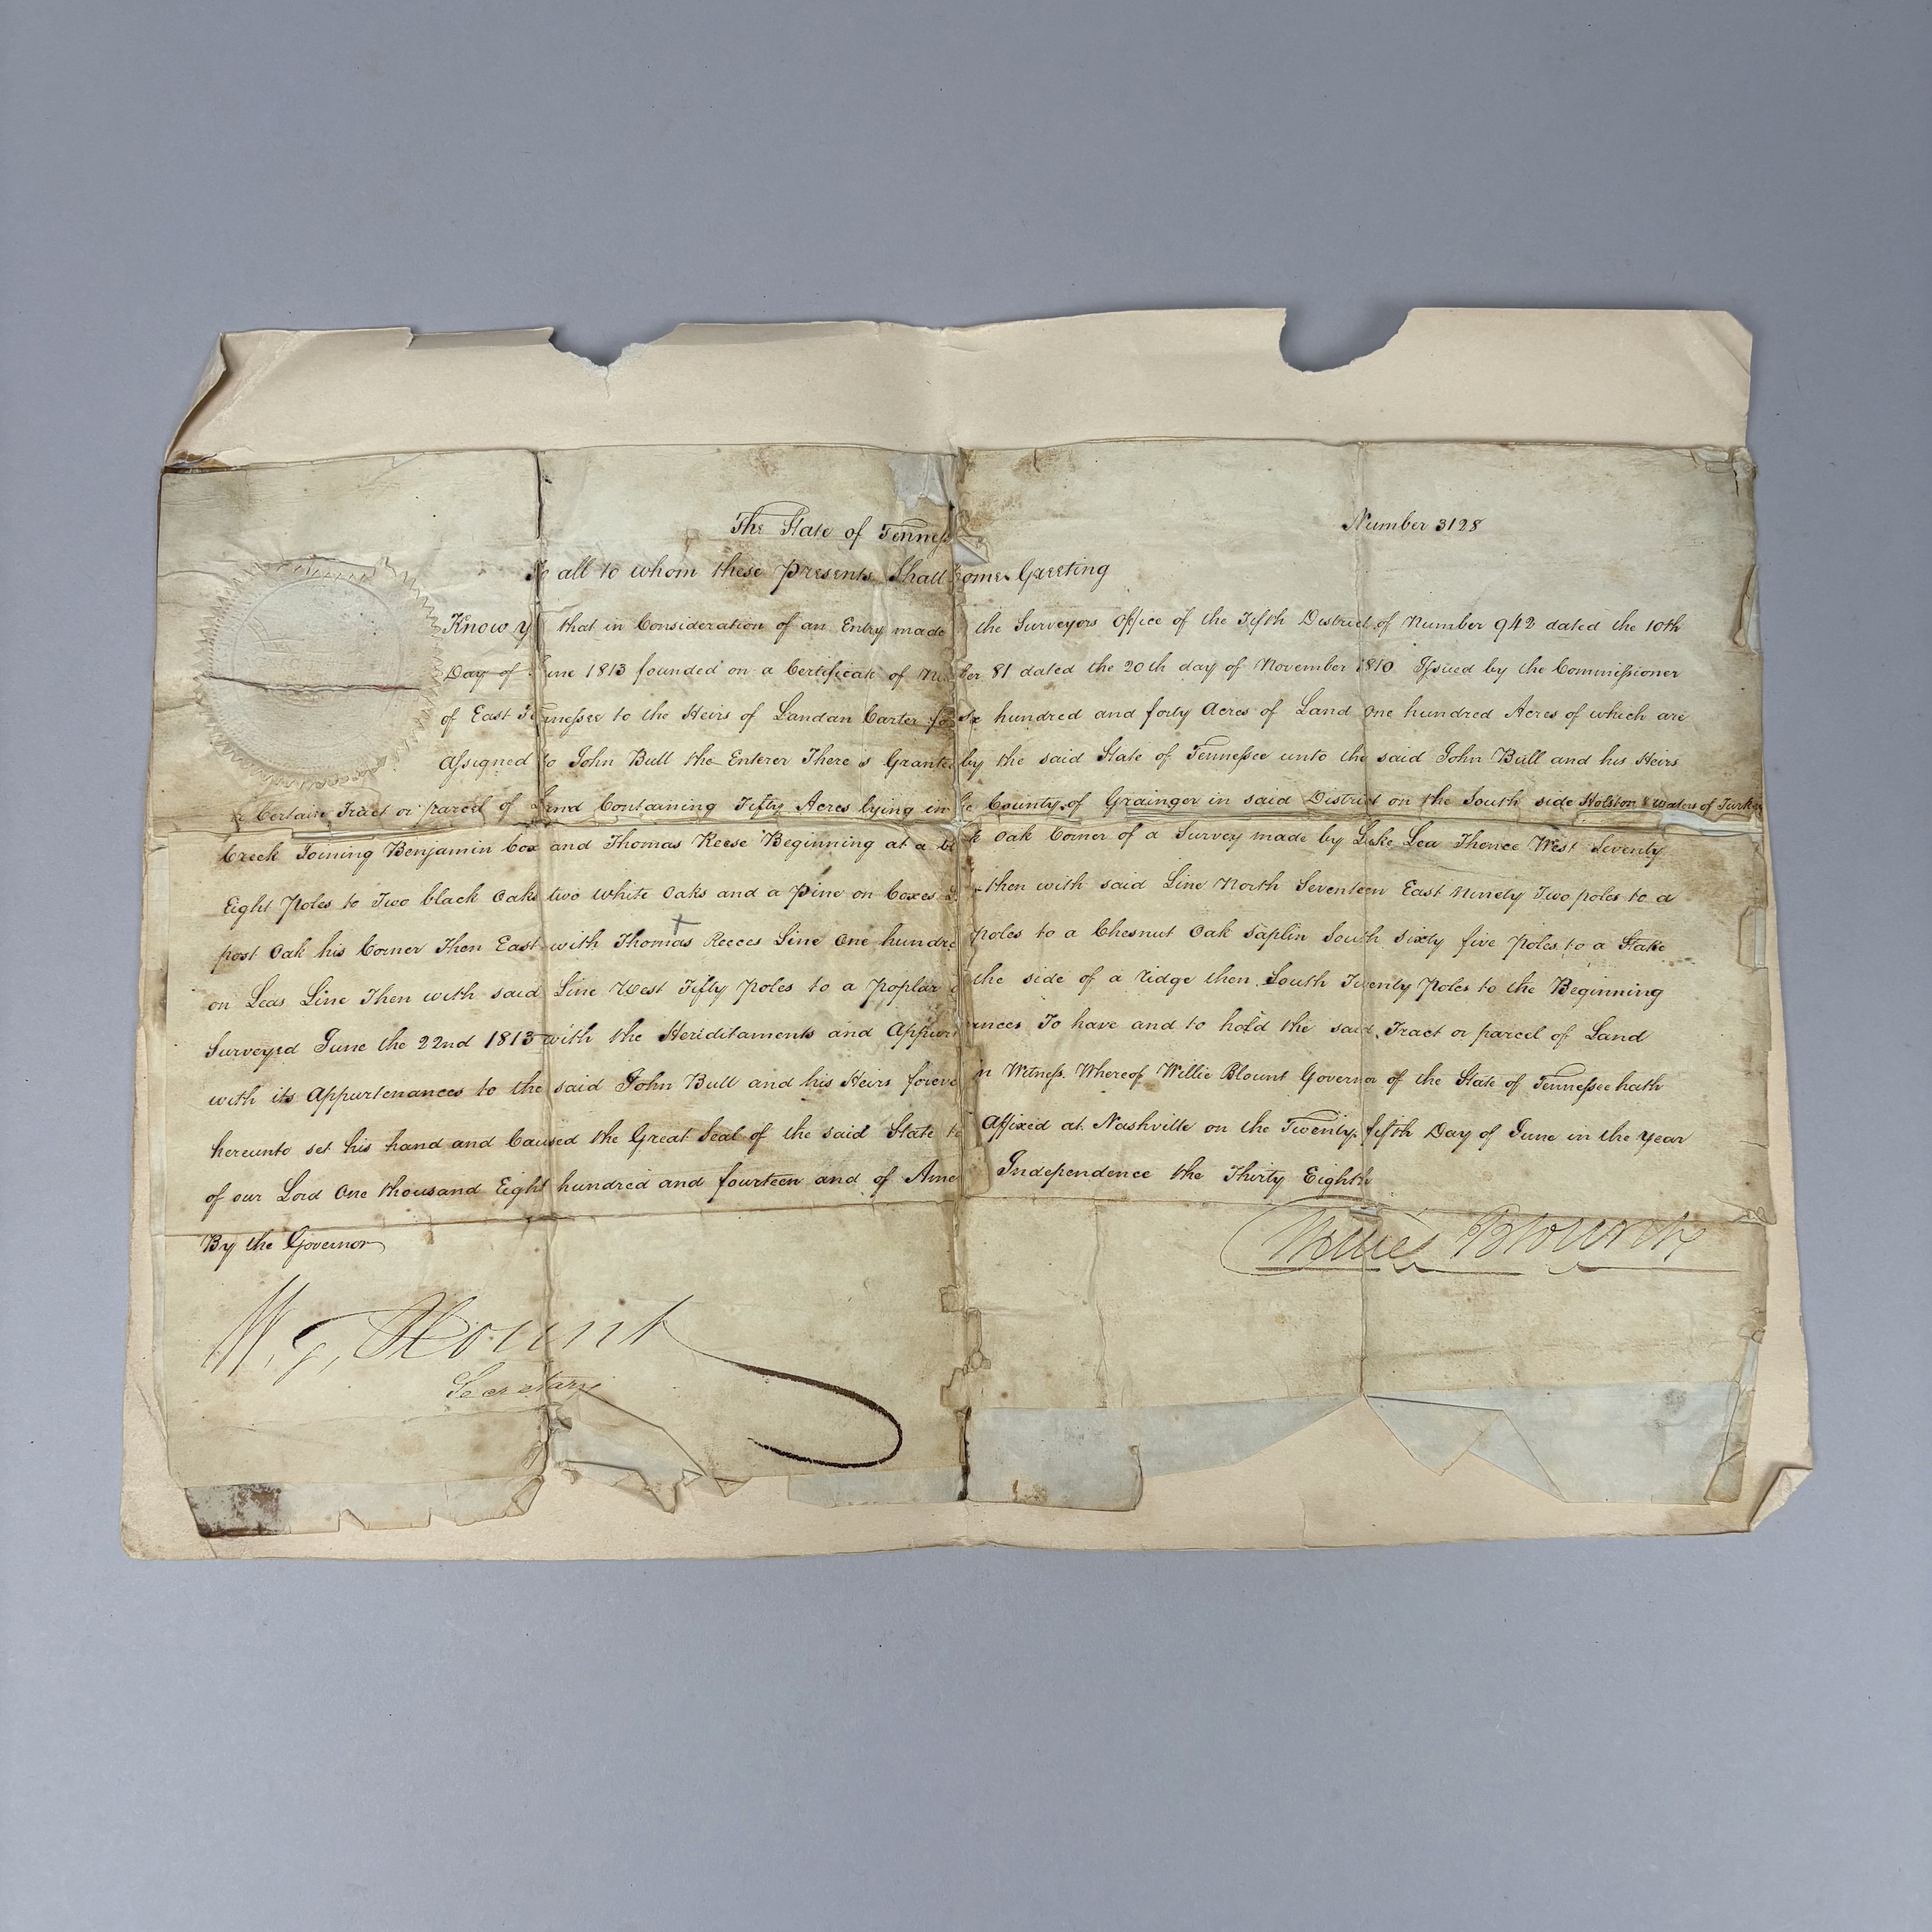 The State of Tenness Number 3128
To all to whom these presents Shall Come Greeting
Know y that in Consideration of an Entry made the Surveyors Office of the Fifth District of Number 942 dated the 10th
Day of June 1813 founded on a Certificate of Nu ber 81 dated the 20th day of November 1810 Issued by the Commissioner
of East Te nnessee to the Heirs of Landan Carter for Six hundred and forty Acres of Land One hundred Acres of which are
Assigned to John Bull the Enterer There is Grante by the said State of Tennessee unto the said John Bull and his Heirs
a Certain Tract or parcel of Land Containing Fifty Acres lying in the County of Grainger in said District on the South side Holston & waters of Turkey
Creek Joining Benjamin Cox and Thomas Reese Beginning at a bl k Oak Corner of a Survey made by Luke Lea Thence West Seventy
Eight Poles to Two black Oaks two white Oaks and a Pine on Coxes then with said Line North Seventeen East Ninety Two poles to a
post Oak his Corner Then East with Thomas Reeces Line One hundre poles to a Chesnut Oak Saplin South sixty five Poles to a Stake
on Leas Line Then with said Line West Fifty Poles to a Poplar the side of a ridge then South Twenty Poles to the Beginning
Surveyed June the 22nd 1813 with the Hereditaments and Appurt ances To have and to hold the said Tract or parcel of Land
with its Appurtenances to the said John Bull and his Heirs foreve In Witness Whereof Willie Blount Governor of the State of Tennessee hath
hereunto set his hand and Caused the Great Seal of the said State to Affixed at Nashville on the Twenty fifth Day of June in the year
of our Lord One thousand Eight hundred and fourteen and of Ame Independence the Thirty Eighth
By the Governor
Willie Blount
W. G. Blount
Secretary